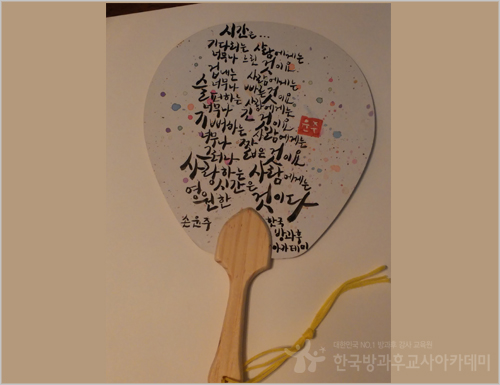 시간은...
기다리는 사람에게는
너무나 느린 것이요
겁내는 사람에게는
너무나 빠른 것이요
슬퍼하는 사람에게는
너무나 긴 것이요
기뻐하는 사람에게는
너무나 짧은 것이요
그러나
사랑하는 사람에게는
시간은
영원한 것이다
손윤주
한국
방과후
아카데미
윤주
대한민국 NO.1 방과후 강사 교육원
한국방과후교사아카데미